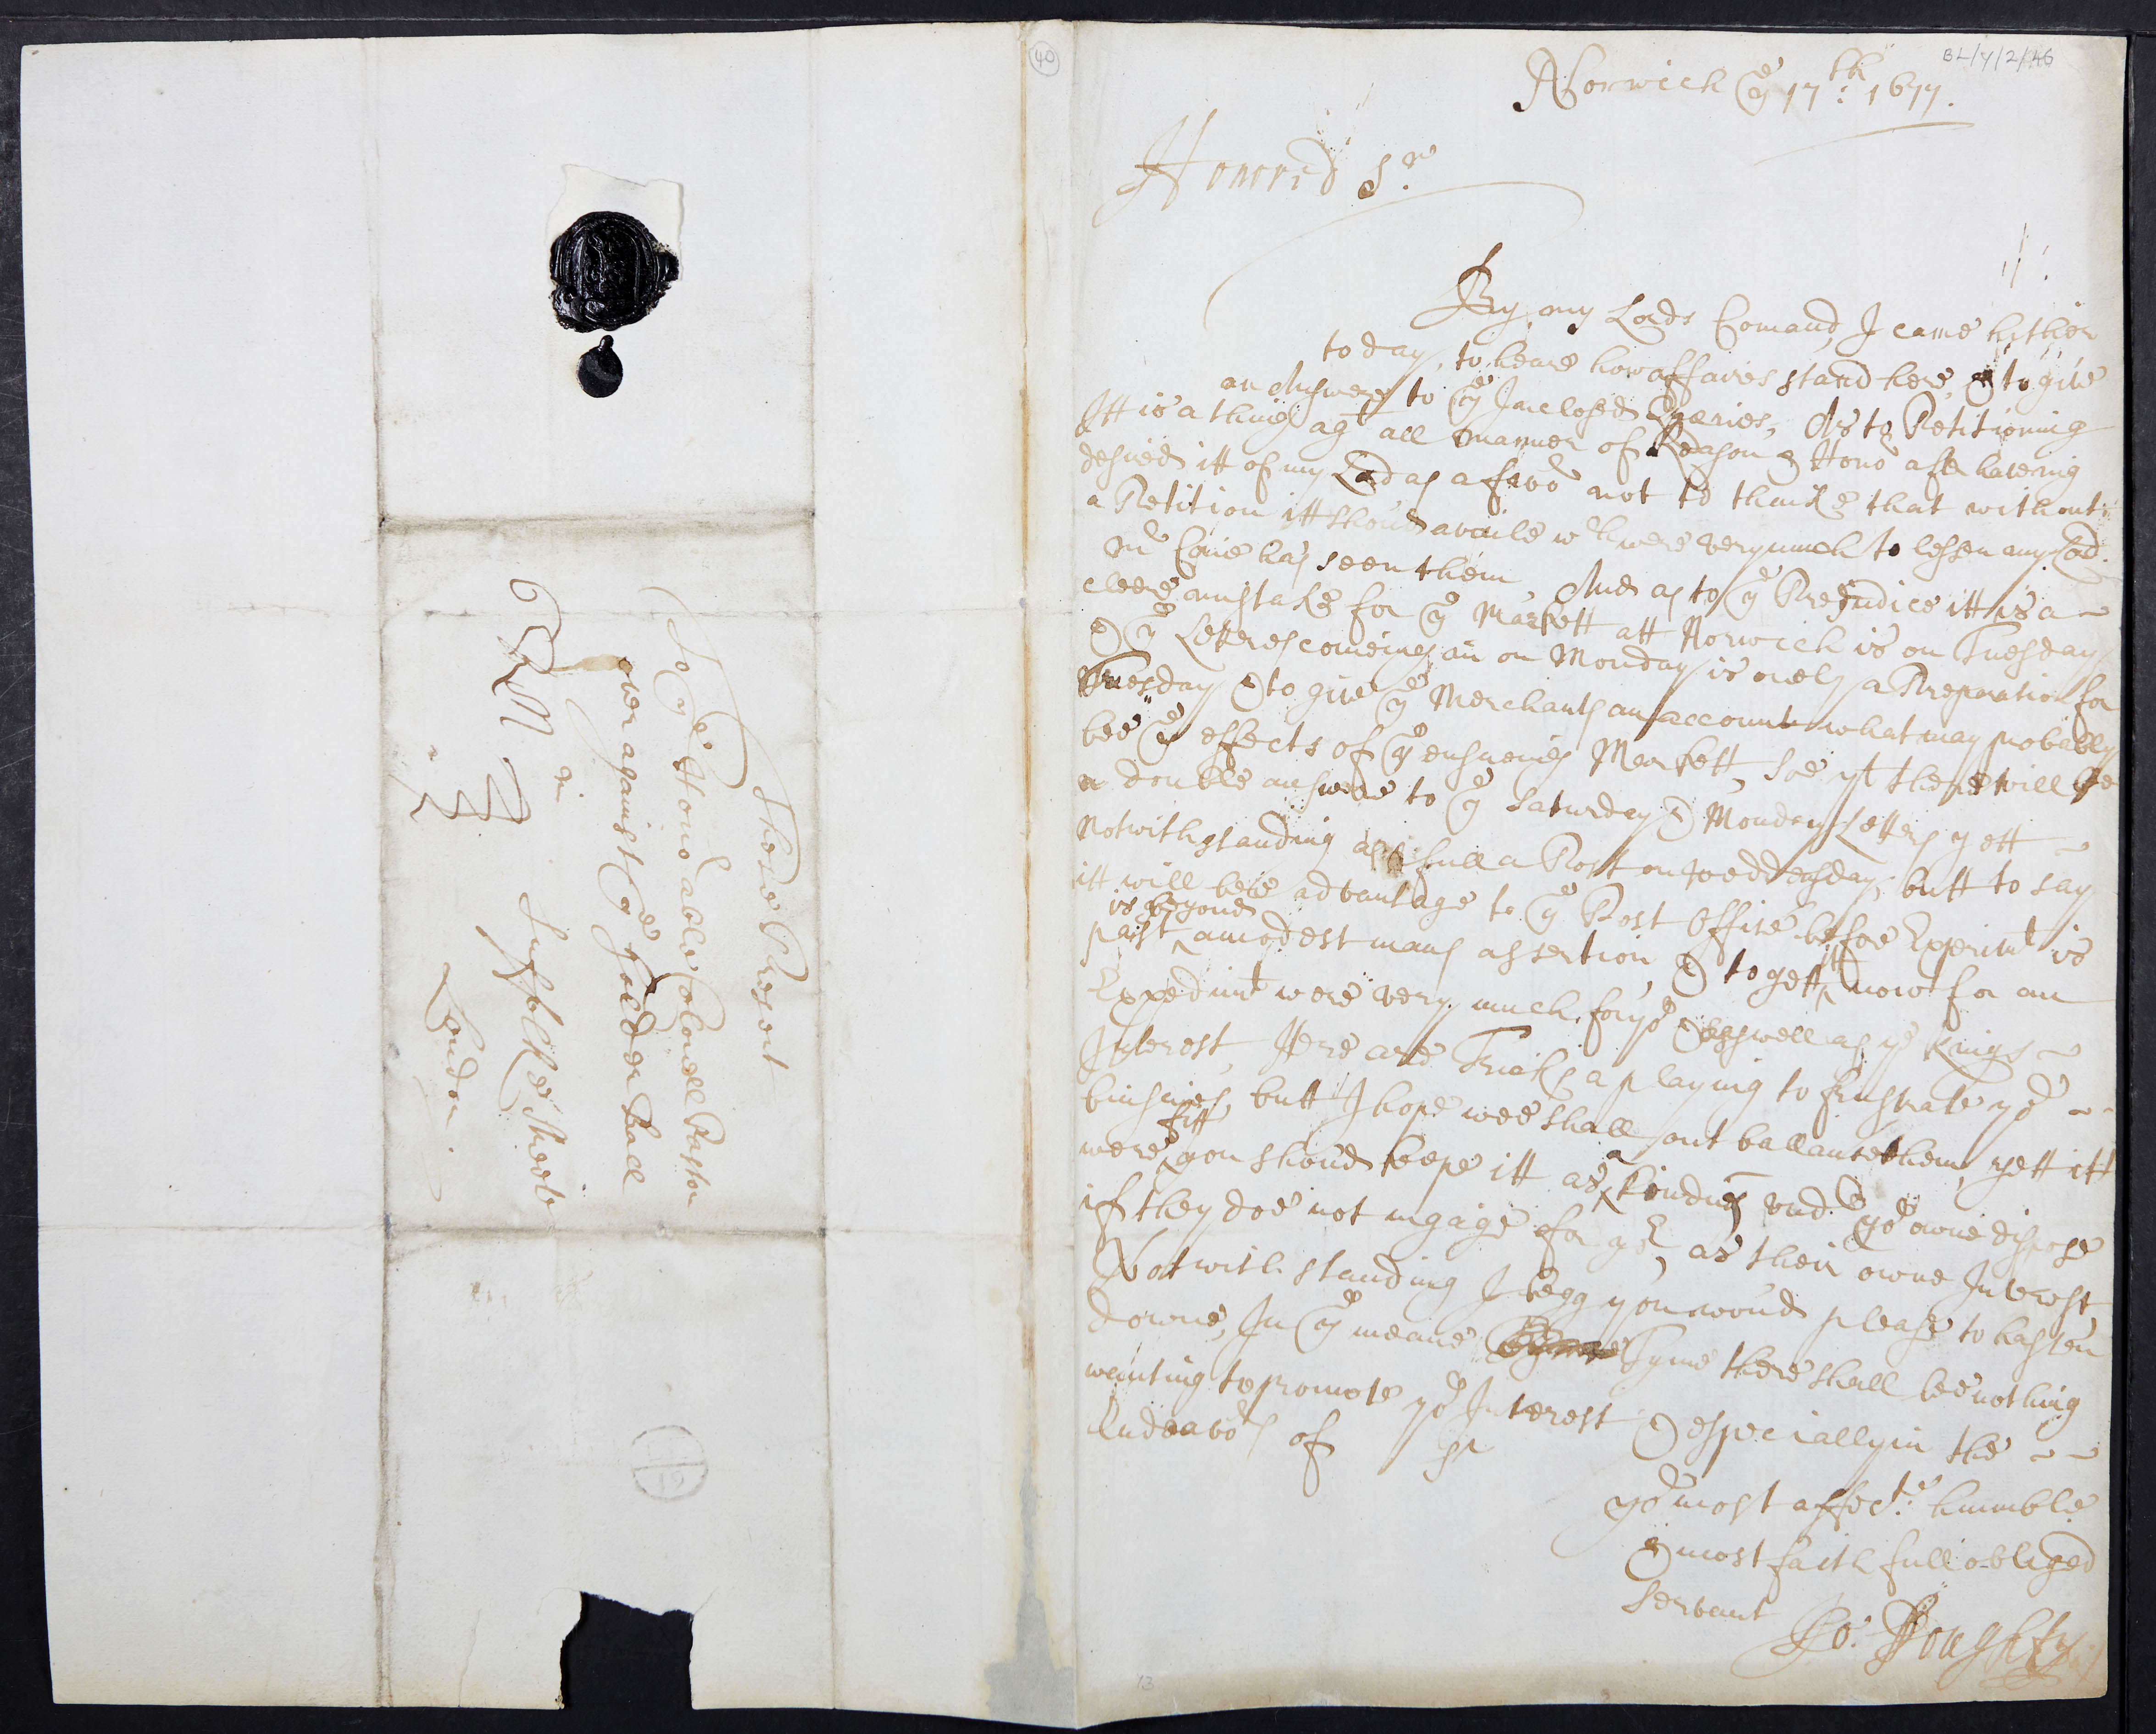 40
BL/Y/2/46
Norwich ye 17th: 1677.
Honored Sr
By my Lords Comand, I came hither
to day, to heare how affaires stand here, & to give
an Answere to ye Inclosed Queries, As to Petitioning
Itt is a thing agt all manner of Reason & Honor after haveing
desired itt of my Lord as a favor not to thinke that without
a Petition itt should availe wch were very much to lessen my Lord.
Mr Corie has seen them, And as to ye Prejudice itt is a
cleere mistake for ye Markett att Norwich is on Tuesday
& ye Letters comeing in on Monday is onely a Preparation for
Tuesday & to give ye Merchants an account what may probably
bee ye effects of ye ensueing Markett, soe yt there will be
a double answere to ye Saturday & Monday Letters yett
Notwithstanding as full a Post on Wedensday, butt to say
itt will bee advantage to ye Post Office before Experimt is
past is beyond a modest mans assertion, & to gett itt now for an
Expedimt were very much for yor as well as ye Kings
Interest, Here are Tricks a playing to frustrate yor
buisnies, butt I hope wee shall out ballance them, yett itt
were fitt you should keepe itt as a kindnes undr yor owne dispose
if they doe not ingage for yor, as their owne Interest,
Notwithstanding I begg you would please to hasten
downe, In ye meane Tyme there shall bee nothing
wanting to promote yor Interest & especially in the
Endeavors of Sr
yor most affect: humble
& most faithfull obliged
Servant
Jo: Doughty
13
These Present
To ye Honorable Colonell Paston
over against ye Golden Ball
in Suffolke Streete
London.